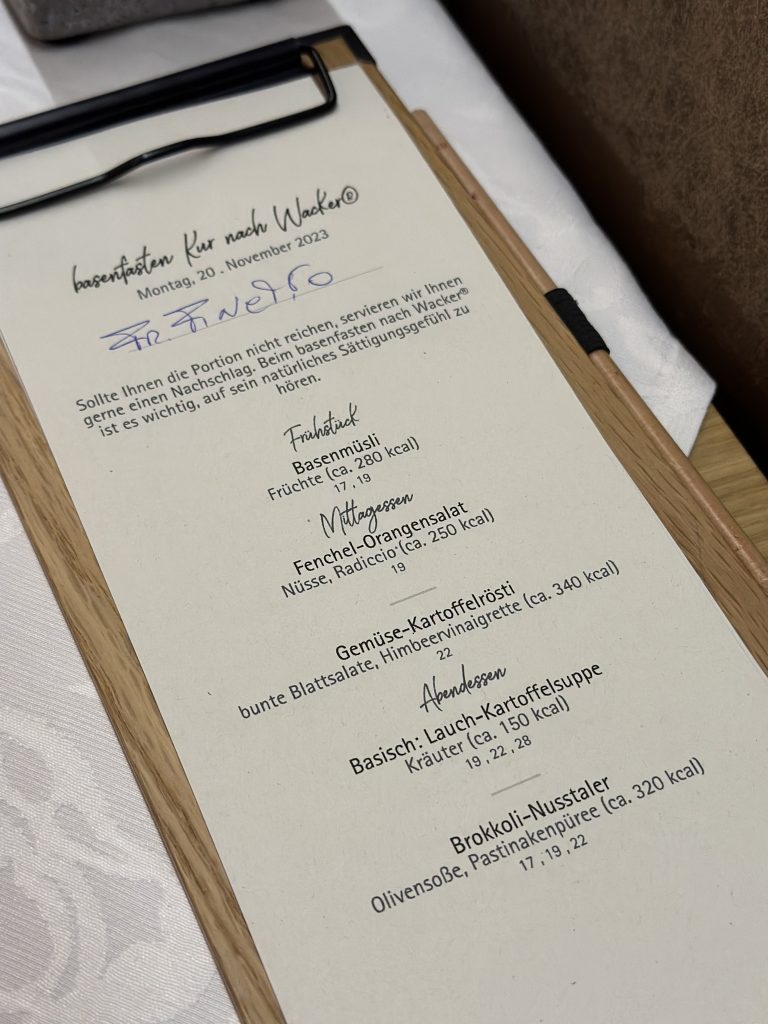 basenfasten Kur nach Wacker®
Montag, 20 . November 2023
Fr. Finetto
Sollte Ihnen die Portion nicht reichen, servieren wir Ihnen
gerne einen Nachschlag. Beim basenfasten nach Wacker®
ist es wichtig, auf sein natürliches Sättigungsgefühl zu
hören.
Frühstück
Basenmüsli
Früchte (ca. 280 kcal)
17 , 19
Mittagessen
Fenchel-Orangensalat
Nüsse, Radiccio (ca. 250 kcal)
19
Gemüse-Kartoffelrösti
bunte Blattsalate, Himbeervinaigrette (ca. 340 kcal)
22
Abendessen
Basisch: Lauch-Kartoffelsuppe
Kräuter (ca. 150 kcal)
19 , 22 , 28
Brokkoli-Nusstaler
Olivensoße, Pastinakenpüree (ca. 320 kcal)
17 , 19 , 22